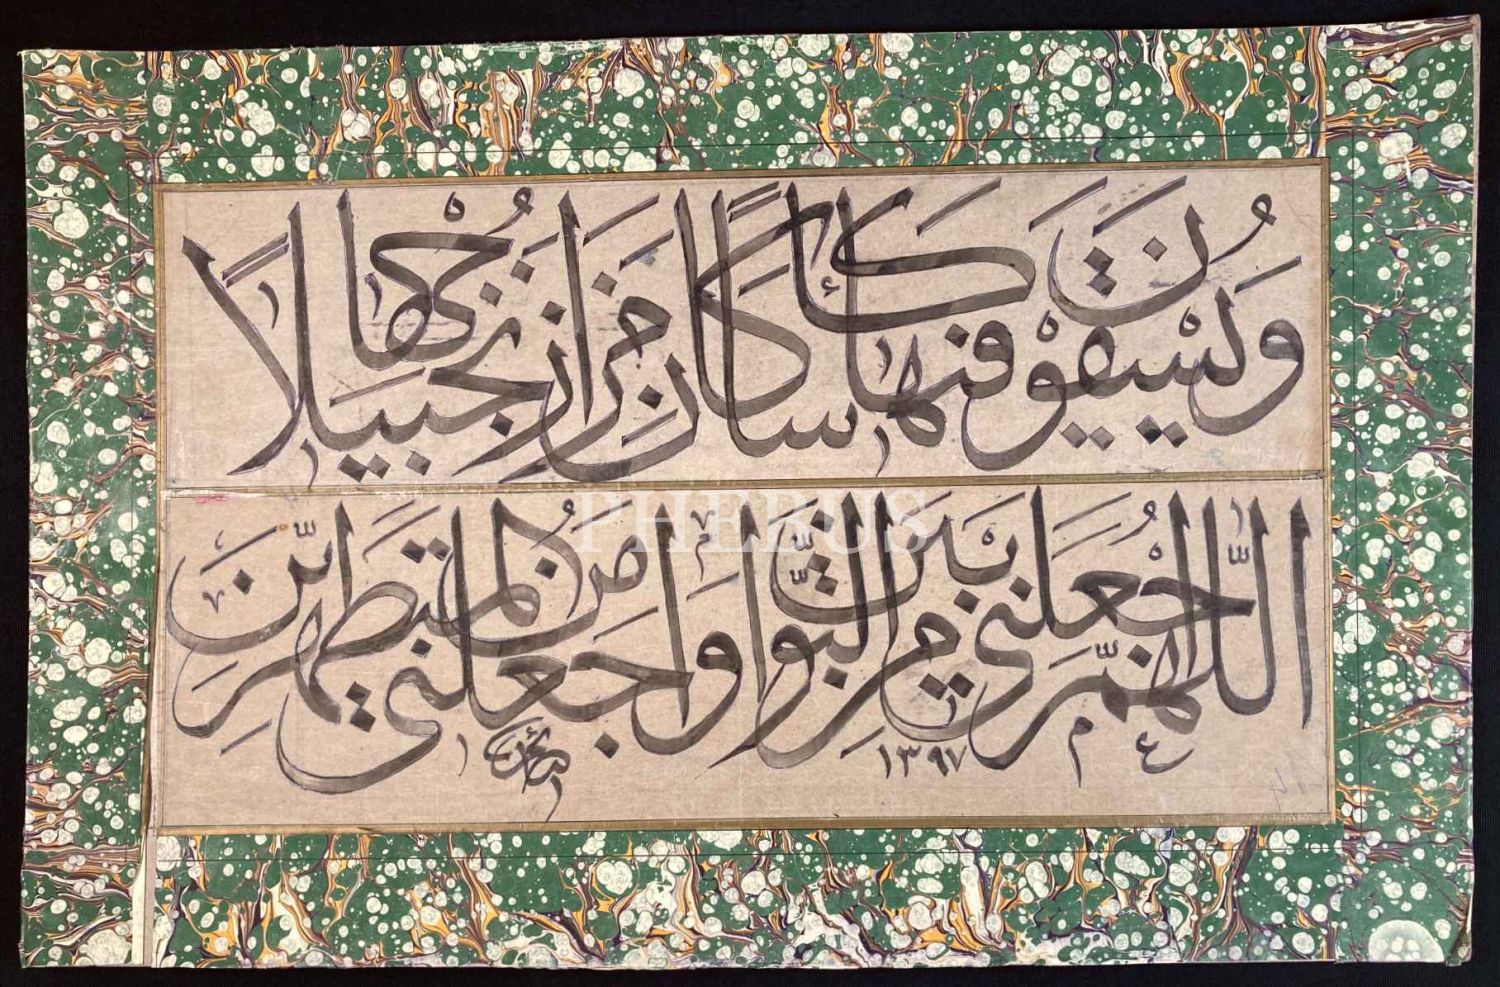 وَيُسْقَوْنَ فِيهَا كَأْسًا كَانَ مِزَاجُهَا زَنْجَبِيلًا
اللّٰهُمَّ اجْعَلْنِي مِنَ التَّوَّابِينَ وَاجْعَلْنِي مِنَ الْمُتَطَهِّرِينَ
١٣٩٧
PHEBUS